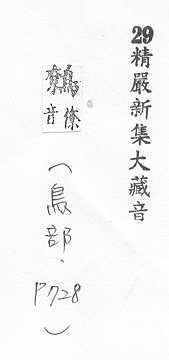 29精嚴新集大藏音
鷯
音僚
(鳥部.P728)